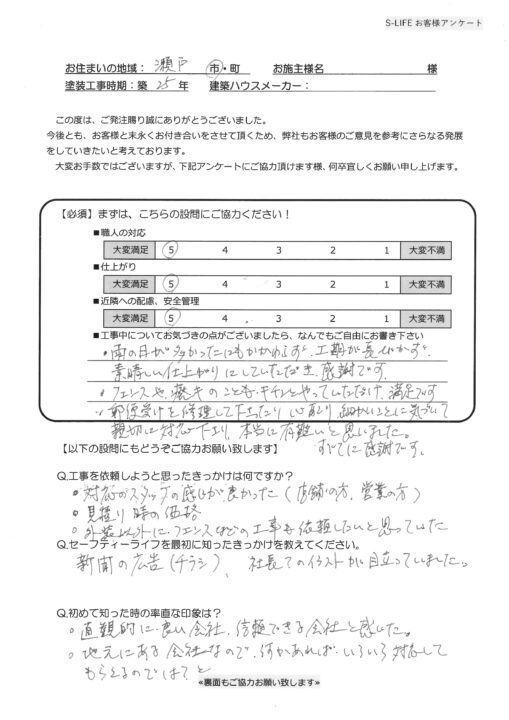 S-LIFE お客様アンケート
お住まいの地域： 瀬戸 市・町 お施主様名 様
塗装工事時期：築 25 年 建築ハウスメーカー：
この度は、ご発注賜り誠にありがとうございました。
今後とも、お客様と末永くお付き合いをさせて頂くため、弊社もお客様のご意見を参考にさらなる発展
をしていきたいと考えております。
大変お手数ではございますが、下記アンケートにご協力頂けます様、何卒宜しくお願い申し上げます。
【必須】まずは、こちらの設問にご協力ください！
■職人の対応
大変満足 5 4 3 2 1 大変不満
■仕上がり
大変満足 5 4 3 2 1 大変不満
■近隣への配慮、安全管理
大変満足 5 4 3 2 1 大変不満
■工事中についてお気づきの点がございましたら、なんでもご自由にお書き下さい
・雨の日が多かったにもかかわらず、工期が長引かず、
素晴しい仕上がりにしていただき、感謝です。
・フェンスや、のことも、キチンとやっていただけ、満足です
・郵便受けを修理して下さったり 細かいことに気づいて
親切に対応下さり、本当に有難いと思いました。
すべてに感謝です。
【以下の設問にもどうぞご協力お願い致します】
Q.工事を依頼しようと思ったきっかけは何ですか？
・対応のスタッフの感じが良かった（店舗の方、営業の方）
・見積り時の価格
・外装以外に、フェンスなどの工事も依頼したいと思っていた
Q.セーフティーライフを最初に知ったきっかけを教えてください。
新聞の広告（チラシ）、 社長てのイラストが目立っていました。
Q.初めて知った時の率直な印象は？
。直観的に、良い会社、信頼できる会社と感じた。
。地元にある会社なので、何かあれば、いろいろ対応して
もらえるのでは？と
≪裏面もご協力お願い致します≫